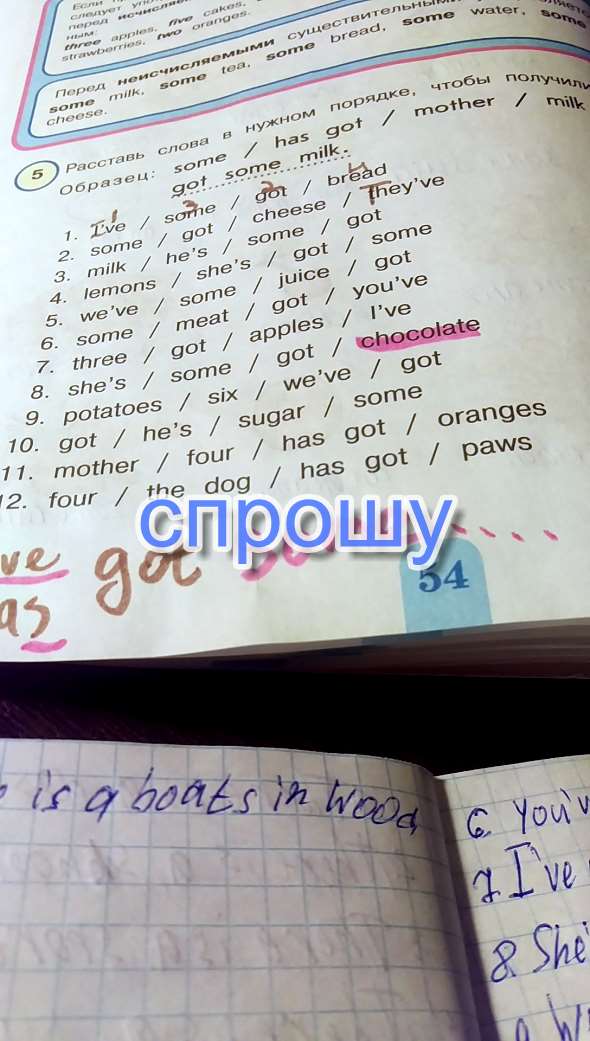 следует
перед
ным:
three apples, five cakes,
strawberries, two oranges.
Перед неисчисляемыми
some milk, some tea, some bread, some water, some
cheese.
5 Расставь слова в нужном порядке, чтобы получили
Образец: some / has got / mother / milk
got some milk.
1 3 2 4
1. I've / some / got / bread
2. some / got / cheese / They've
3. milk / he's / some / got
4. lemons / she's / got / some
5. we've / some / juice / got
6. some / meat / got / you've
7. three / got / apples / I've
8. she's / some / got / chocolate
9. potatoes / six / we've / got
10. got / he's / sugar / some
11. mother / four / has got / oranges
12. four / the dog / has got / paws
спрошу
ve got
as
54
is a boats in Wood
6. You'v
7 I've
8. She'